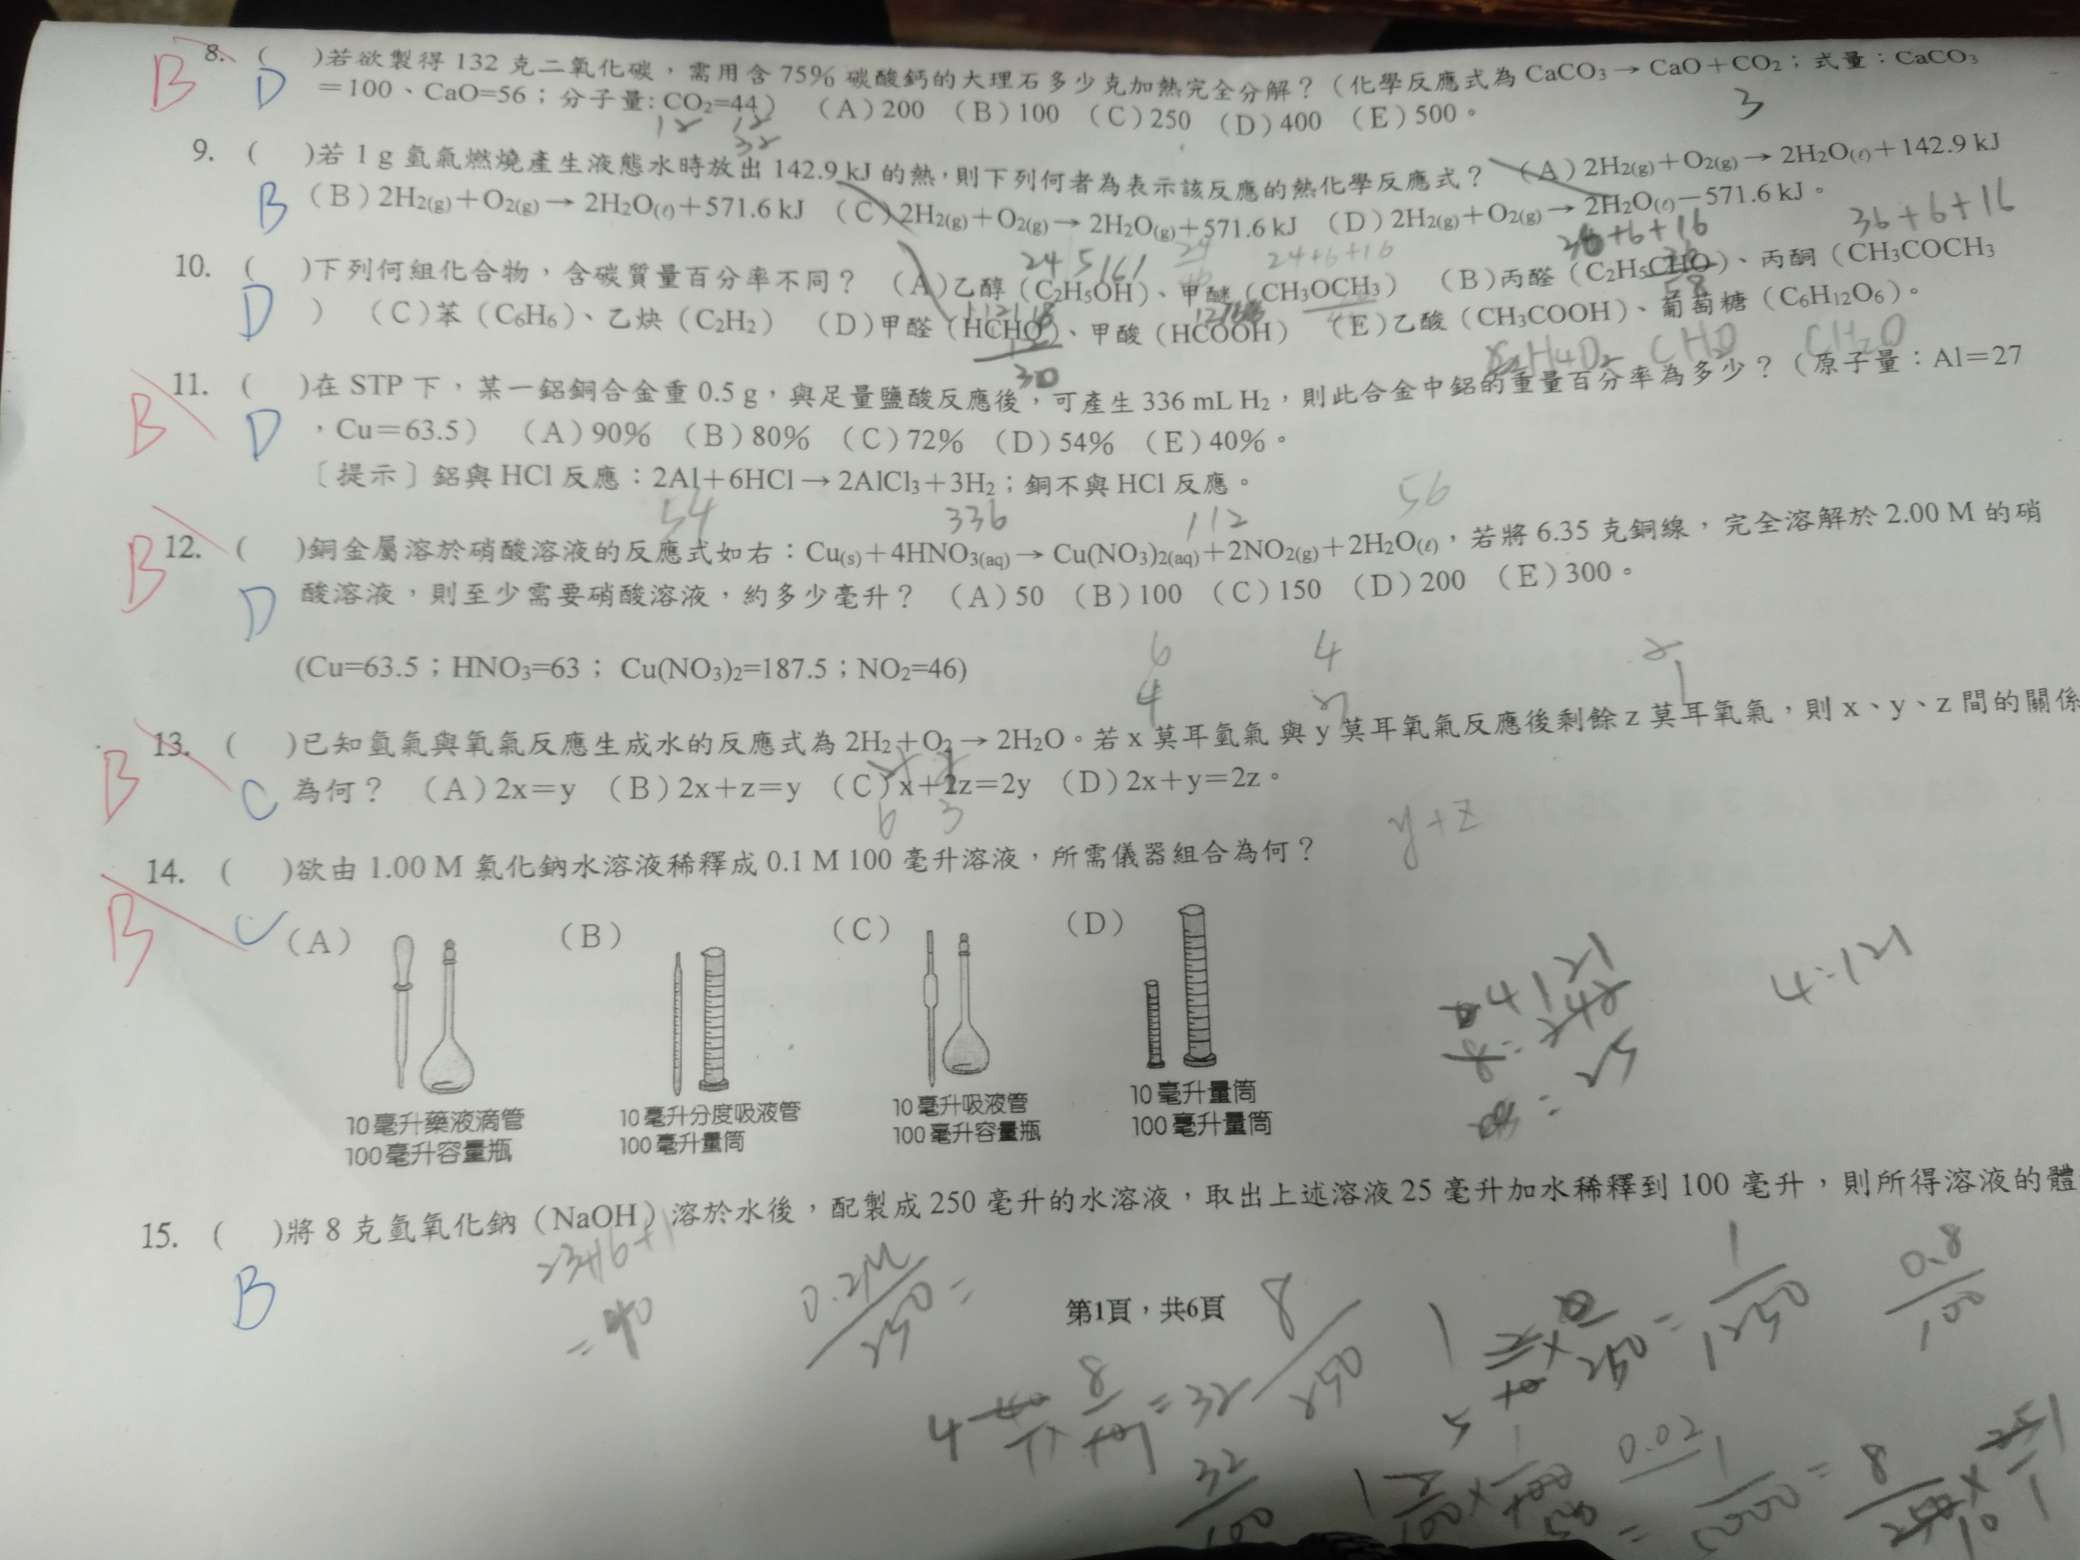 B 8. ( )若欲製得 132 克二氧化碳，需用含 75% 碳酸鈣的大理石多少克加熱完全分解？（化學反應式為 CaCO3→CaO＋CO2；式量：CaCO3
D ＝100、CaO=56；分子量: CO2=44） （A）200 （B）100 （C）250 （D）400 （E）500。
3
12
32
9. ( )若 1 g 氫氣燃燒產生液態水時放出 142.9 kJ 的熱，則下列何者為表示該反應的熱化學反應式？ （A）2H2(g)＋O2(g)→ 2H2O(ℓ)＋142.9 kJ
B （B）2H2(g)＋O2(g)→ 2H2O(ℓ)＋571.6 kJ （C）2H2(g)＋O2(g)→ 2H2O(g)＋571.6 kJ （D）2H2(g)＋O2(g)→ 2H2O(ℓ)－571.6 kJ。
24+6+16 36+6+16
10. ( )下列何組化合物，含碳質量百分率不同？ （A）乙醇（C2H5OH）、甲醚（CH3OCH3） （B）丙醛（C2H5CHO）、丙酮（CH3COCH3
D ） （C）苯（C6H6）、乙炔（C2H2） （D）甲醛（HCHO）、甲酸（HCOOH） （E）乙酸（CH3COOH）、葡萄糖（C6H12O6）。
30 CH2O
B 11. ( )在 STP 下，某一鋁銅合金重 0.5 g，與足量鹽酸反應後，可產生 336 mL H2，則此合金中鋁的重量百分率為多少？（原子量：Al＝27
D ，Cu＝63.5） （A）90% （B）80% （C）72% （D）54% （E）40%。
〔提示〕鋁與 HCl 反應：2Al＋6HCl → 2AlCl3＋3H2；銅不與 HCl 反應。
54 336 112 56
B 12. ( )銅金屬溶於硝酸溶液的反應式如右：Cu(s)＋4HNO3(aq)→ Cu(NO3)2(aq)＋2NO2(g)＋2H2O(ℓ)，若將 6.35 克銅線，完全溶解於 2.00 M 的硝
D 酸溶液，則至少需要硝酸溶液，約多少毫升？ （A）50 （B）100 （C）150 （D）200 （E）300。
(Cu=63.5；HNO3=63； Cu(NO3)2=187.5；NO2=46)
6 4 2
4 2 1
B 13. ( )已知氫氣與氧氣反應生成水的反應式為 2H2＋O2→ 2H2O。若 x 莫耳氫氣 與 y 莫耳氧氣反應後剩餘 z 莫耳氧氣，則 x、y、z 間的關係
C 為何？ （A）2x＝y （B）2x＋z＝y （C）x＋2z＝2y （D）2x＋y＝2z。
6 3 y+z
14. ( )欲由 1.00 M 氯化鈉水溶液稀釋成 0.1 M 100 毫升溶液，所需儀器組合為何？
B C （A） （B） （C） （D）
10毫升藥液滴管
100毫升容量瓶
10毫升分度吸液管
100毫升量筒
10毫升吸液管
100毫升容量瓶
10毫升量筒
100毫升量筒
15. ( )將 8 克氫氧化鈉（NaOH）溶於水後，配製成 250 毫升的水溶液，取出上述溶液 25 毫升加水稀釋到 100 毫升，則所得溶液的體
B 23+16+1
=40
0.2M/250 =
第1頁，共6頁
8/250
1/1250
0.8/100
32/100